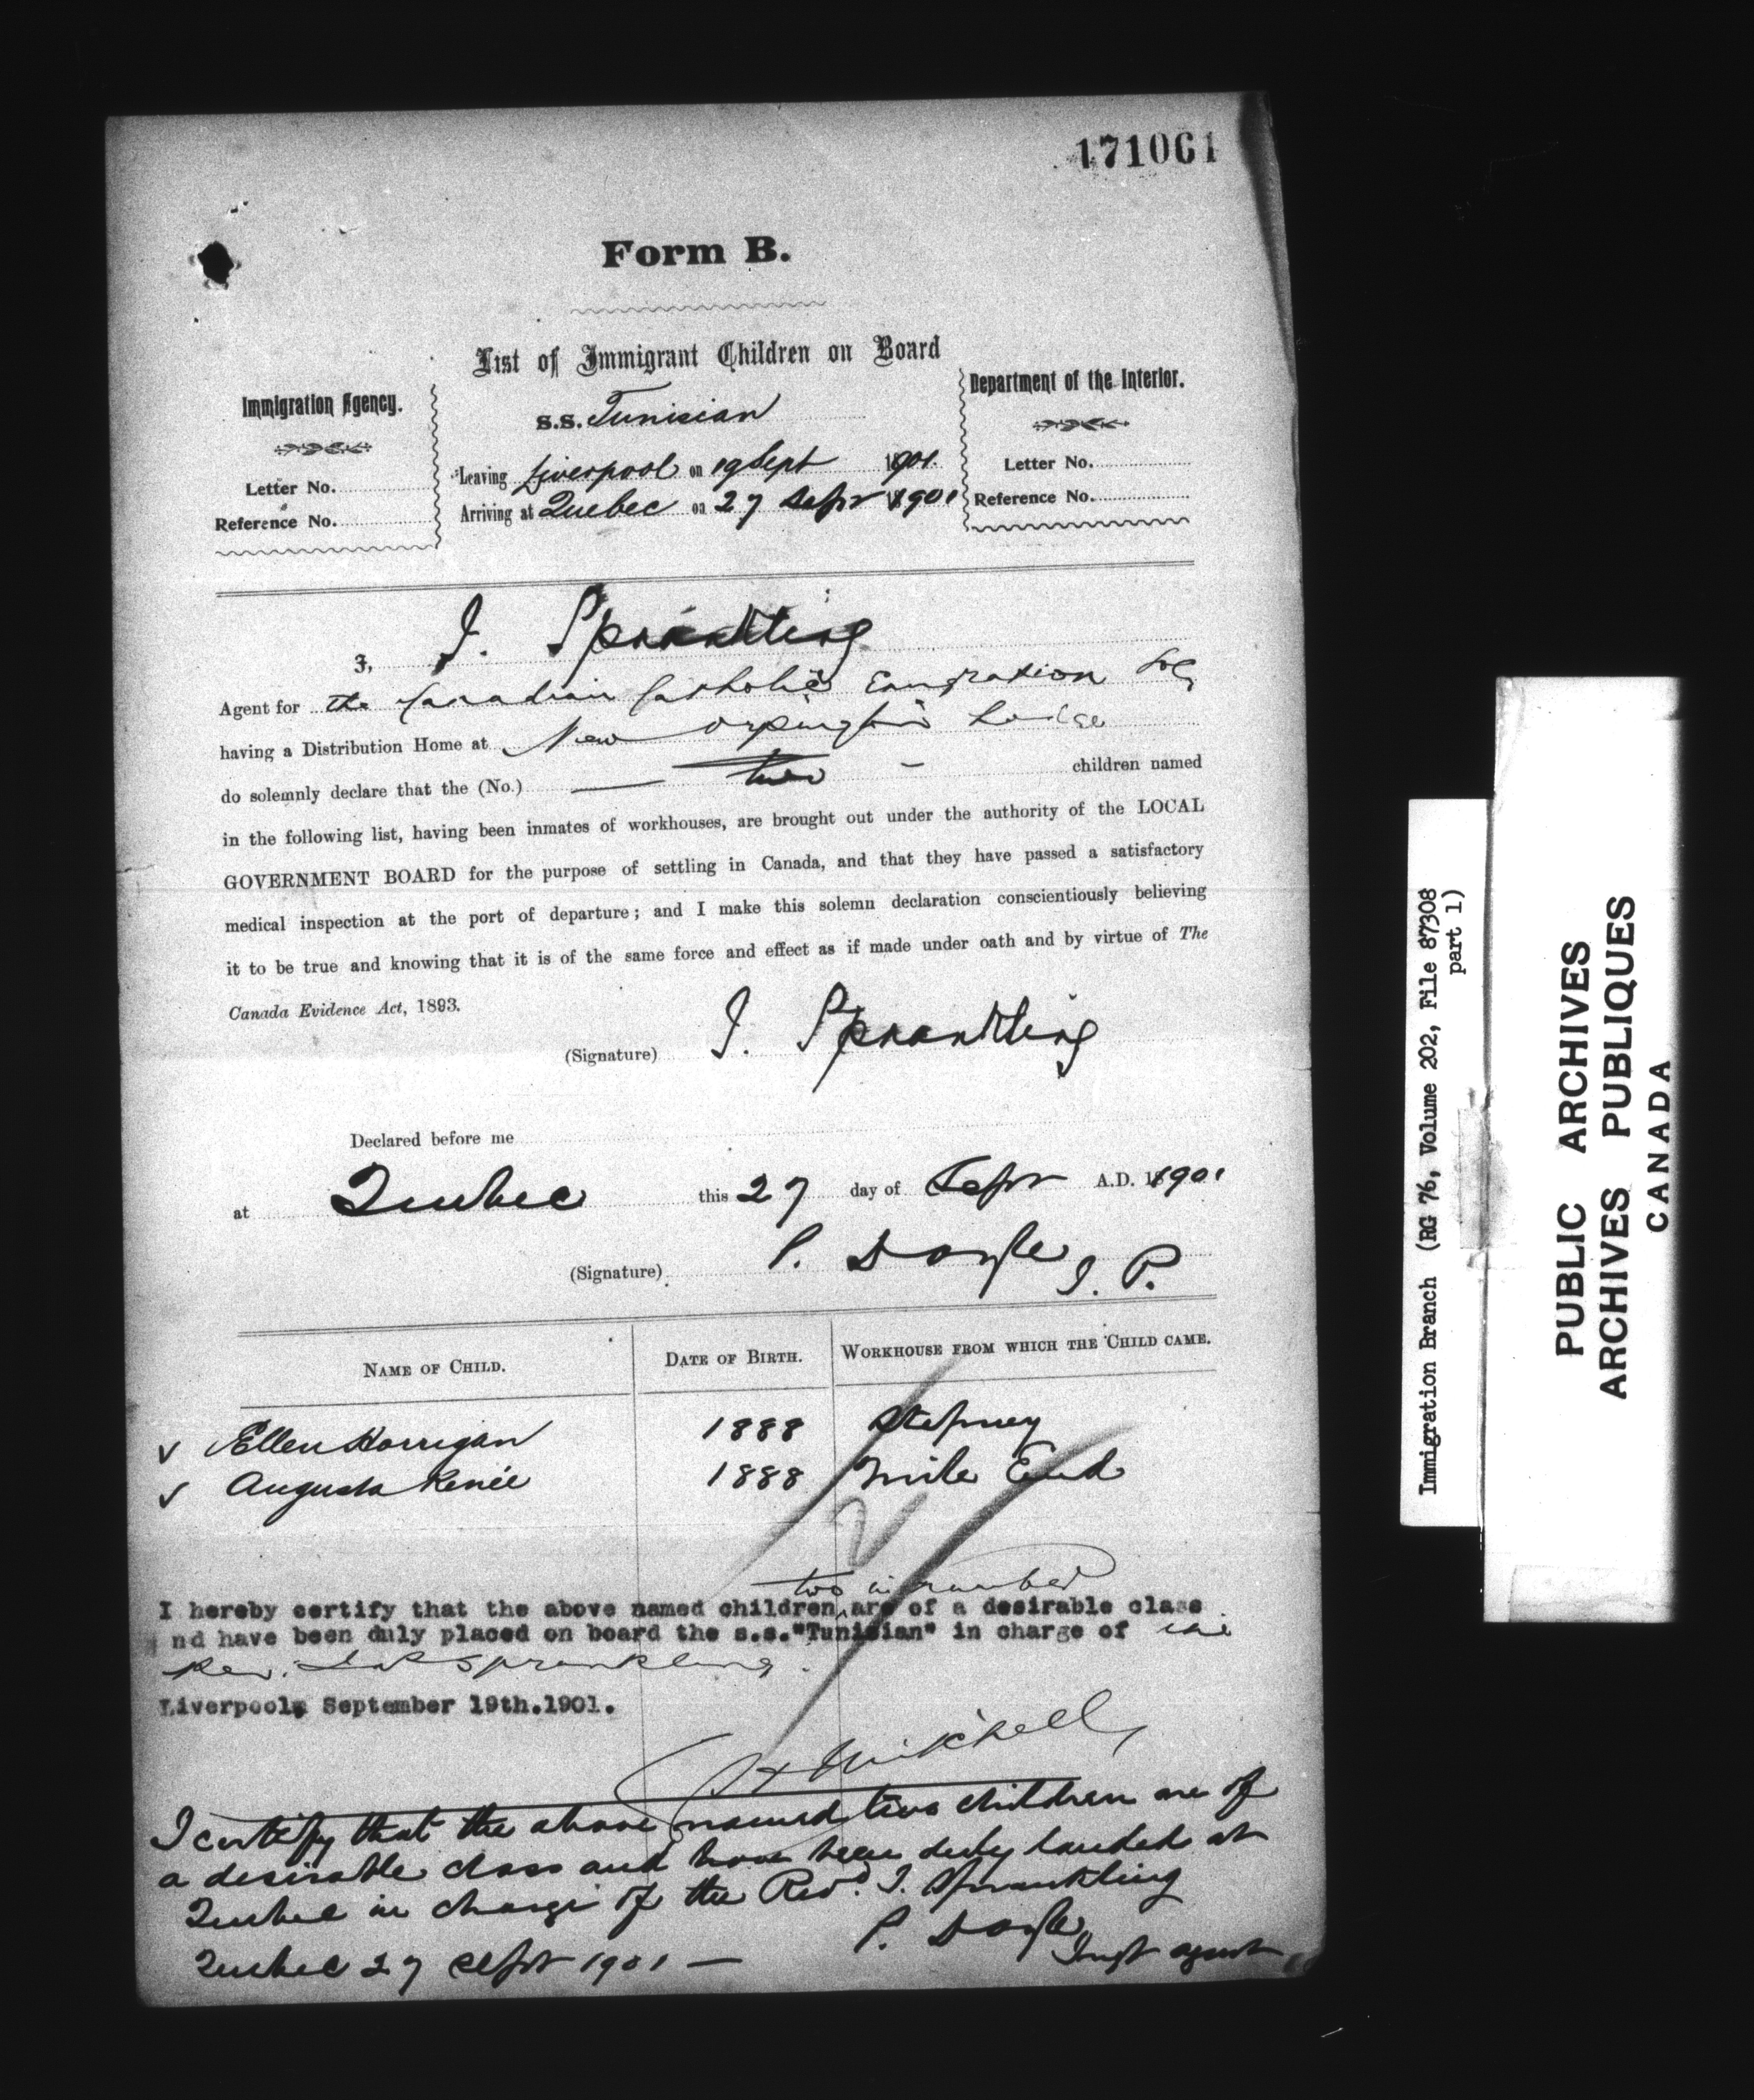 171061
Form B.
List of Immigrant Children on Board
s.s. Tunisian
Leaving Liverpool on 19 Sept 1901.
Arriving at Quebec on 27 Sept 1901
Immigration Agency.
Letter No.
Reference No.
Department of the Interior.
Letter No.
Reference No.
I, J. Sprankling
Agent for the Canadian Catholic Emigration Soc
having a Distribution Home at New Orpington Lodge
do solemnly declare that the (No.) two children named
in the following list, having been inmates of workhouses, are brought out under the authority of the LOCAL
GOVERNMENT BOARD for the purpose of settling in Canada, and that they have passed a satisfactory
medical inspection at the port of departure; and I make this solemn declaration conscientiously believing
it to be true and knowing that it is of the same force and effect as if made under oath and by virtue of The
Canada Evidence Act, 1893.
(Signature) J. Sprankling
Declared before me
at Quebec this 27 day of Sept A.D. 1901
(Signature) P. Doyle J. P.
NAME OF CHILD. DATE OF BIRTH. WORKHOUSE FROM WHICH THE CHILD CAME.
Ellen Horrigan 1888 Stepney
Augusta Renée 1888 Mile End
2
two in number
I hereby certify that the above named children are of a desirable class
nd have been duly placed on board the s.s."Tunisian" in charge of the
Rev. Sprankling.
Liverpool, September 19th.1901.
Mitchell
I certify that the above named two children are of
a desirable class and have been duly landed at
Quebec in charge of the Revd. J. Sprankling
P. Doyle
Quebec 27 Sept 1901 — Imgt agent
Immigration Branch (RG 76, Volume 202, File 87308
part 1)
PUBLIC ARCHIVES
ARCHIVES PUBLIQUES
CANADA